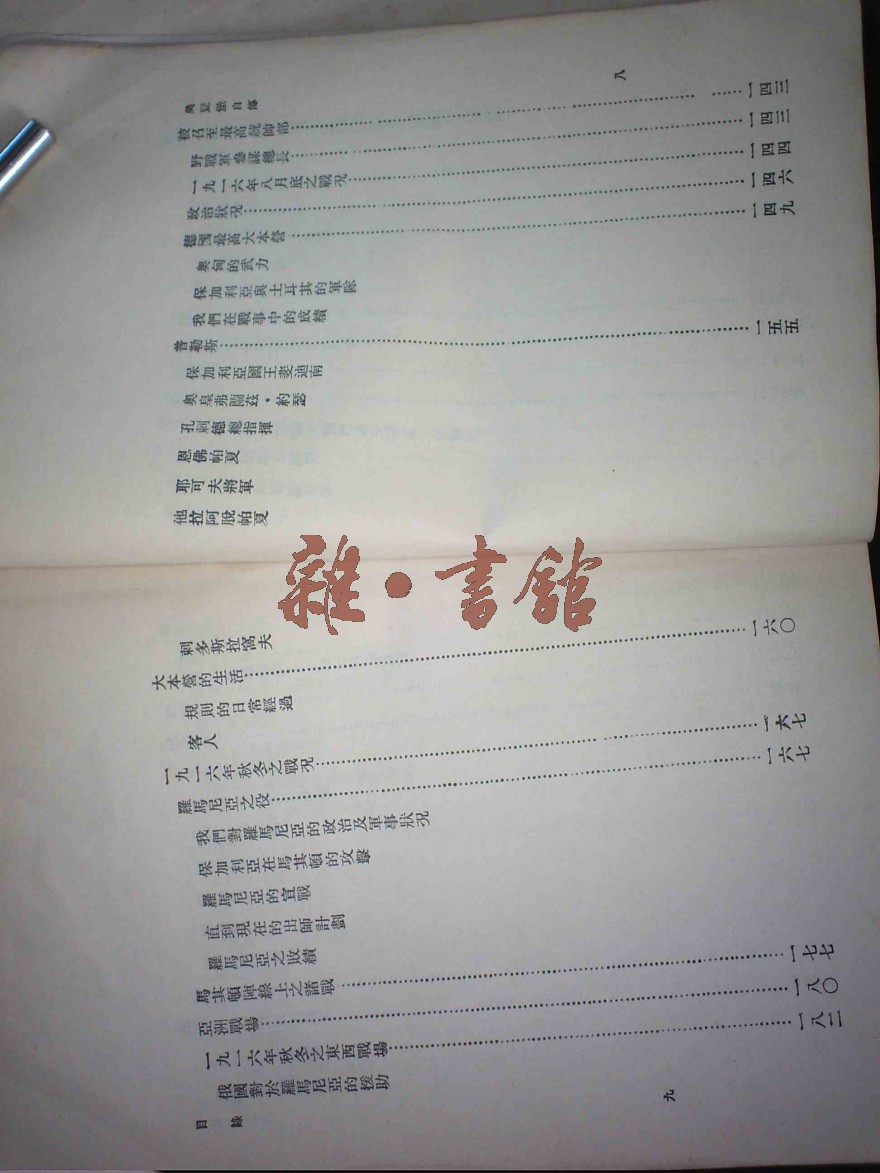 興登堡自傳
八
被召至最高統帥部……一四三
野戰軍參謀總長……一四三
一九一六年八月底之戰況……一四四
政治狀況……一四六
德國最高大本營……一四九
奧匈的武力
保加利亞與土耳其的軍隊
我們在戰事中的成績
普勒斯……一五五
保加利亞國王斐迪南
奧皇弗蘭茲·約瑟
孔剌德總指揮
恩佛帕夏
耶可夫將軍
他拉阿脫帕夏
雜·書館
剌多斯拉窩夫
大本營的生活……一六〇
規則的日常經過
客人
一九一六年秋冬之戰況……一六七
羅馬尼亞之役……一六七
我們對羅馬尼亞的政治及軍事狀況
保加利亞在馬其頓的攻擊
羅馬尼亞的宣戰
直到現在的出師計劃
羅馬尼亞之敗績
馬其頓陣線上之諸戰……一七七
亞洲戰場……一八〇
一九一六年秋冬之東西戰場……一八二
俄國對於羅馬尼亞的援助
目錄
九